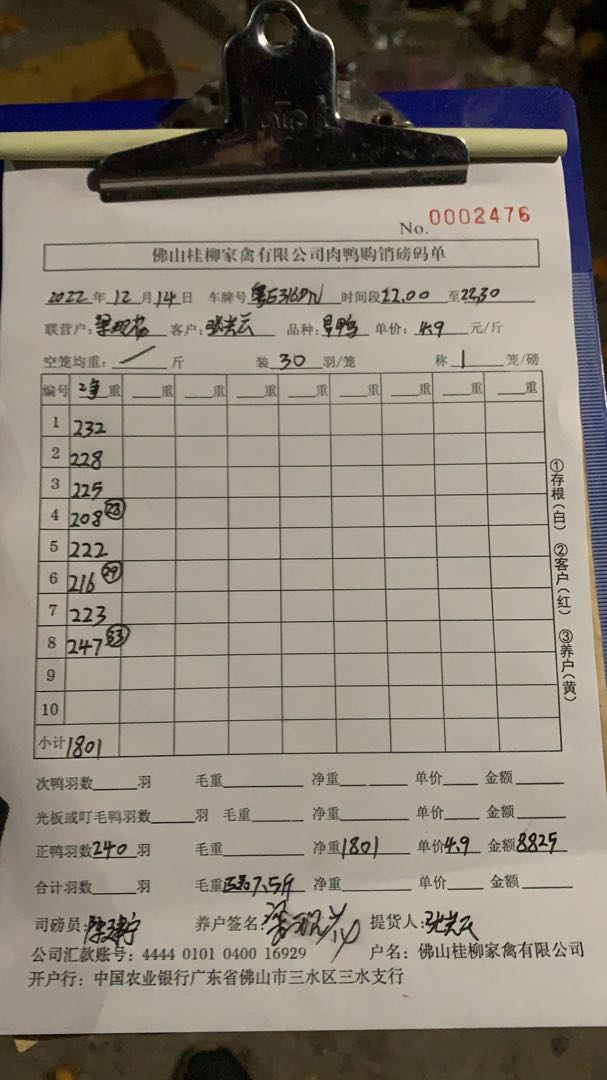 No. 0002476
佛山桂柳家禽有限公司肉鸭购销磅码单
2022年12月14日 车牌号 时间段22.00至22.30
联营户: 客户: 张岩云 品种: 旱鸭 单价: 4.9 元/斤
空笼均重: / 斤 装 30 羽/笼 称 1 笼/磅
编号 净重 重 重 重 重 重 重 重 重
1 232
2 228
3 225
4 208 28
5 222
6 216 29
7 223
8 247 33
9
10
小计 1801
①存根(白) ②客户(红) ③养户(黄)
次鸭羽数 羽 毛重 净重 单价 金额
光板或叮毛鸭羽数 羽 毛重 净重 单价 金额
正鸭羽数240羽 毛重 净重1801 单价4.9 金额8825
合计羽数 羽 毛重 7.5斤 净重 单价 金额
司磅员: 养户签名: 提货人: 张岩云
公司汇款账号: 4444 0101 0400 16929 户名: 佛山桂柳家禽有限公司
开户行: 中国农业银行广东省佛山市三水区三水支行